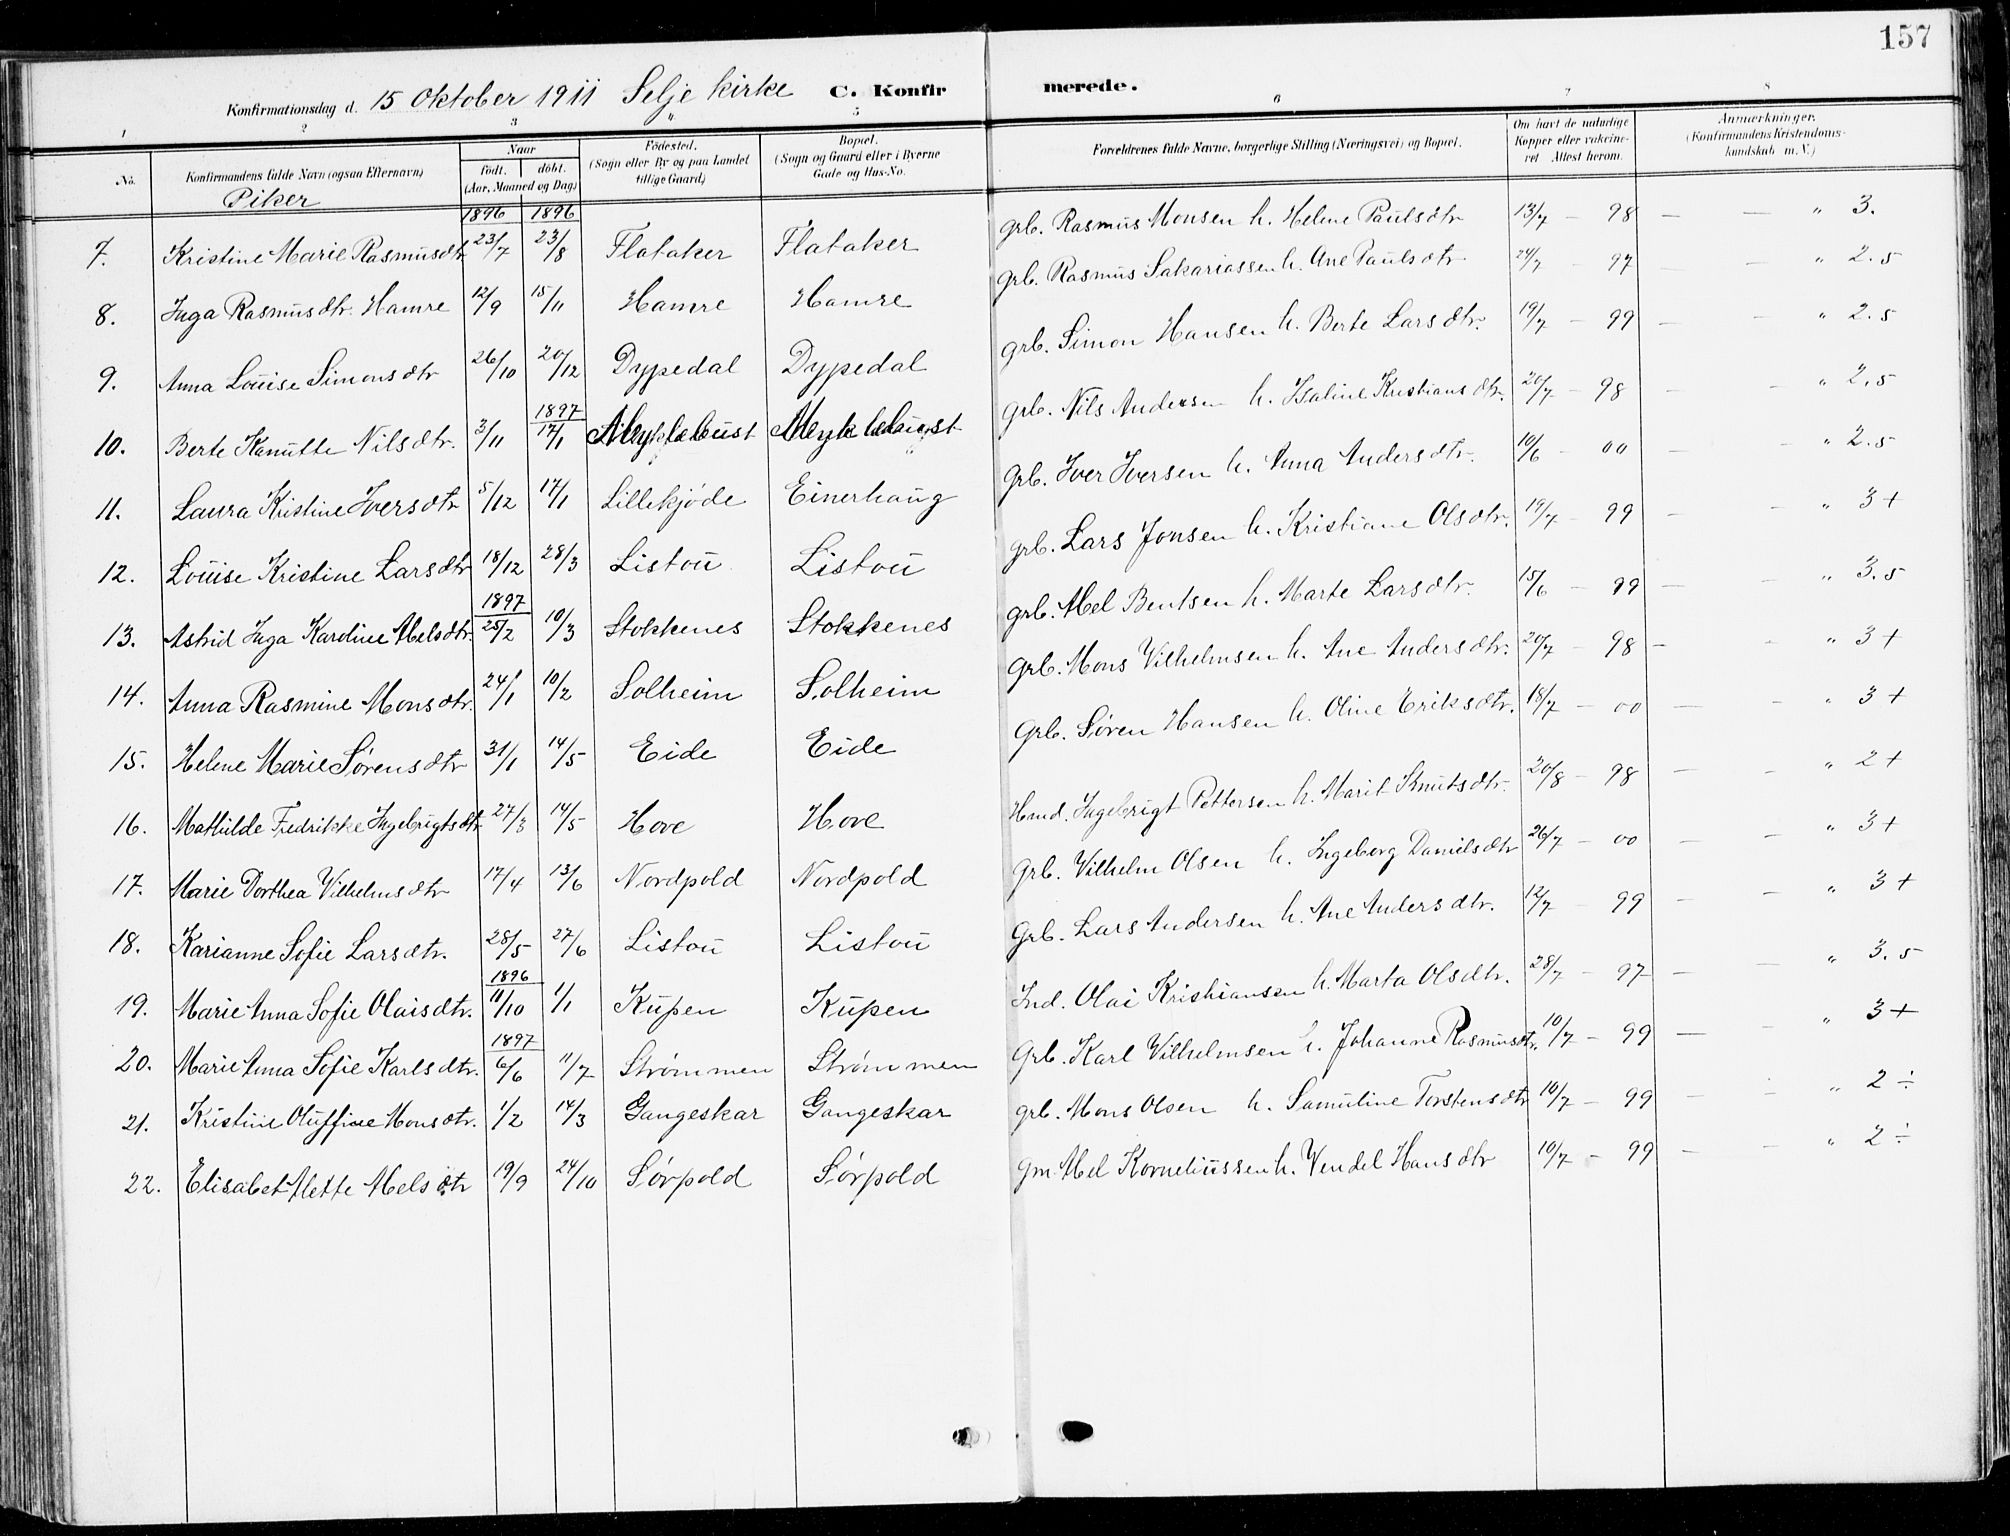 157
Konfirmationsdag d. 15 Oktober 1911 Selje kirke C. Konfirmerede.
1 2 3 4 5 6 7 8
No. Konfirmandens fulde Navn (ogsaa Efternavn) Naar Født. døbt. (Aar, Maaned og Dag) Fødested. (Sogn eller By og paa Landet tillige Gaard) Bopæl. (Sogn og Gaard eller i Byerne Gade og Hus-No. Forældrenes fulde Navne, borgerlige Stilling (Næringsvei) og Bopæl. Om havt de naturlige Kopper eller vakcineret Attest herom. Anmærkninger. (Konfirmandens Kristendomskundskab m. V.)
Piker
1896 1896
7. Kristine Marie Rasmusdtr 23/7 23/8 Flataker Flataker grb. Rasmus Monsen h. Helene Paulsdtr 13/7 – 98 — — " 3.
8. Inga Rasmusdtr. Hamre 12/9 15/11 Hamre Hamre grb. Rasmus Sakariassen h. Ane Paulsdtr 24/7 – 97 — " 2.5
9. Anna Louise Simonsdtr 26/10 20/12 Dypedal Dypedal grb. Simon Hansen h. Berte Larsdtr. 19/7 – 99 — — " 2.5
1897
10. Berte Kanutte Nilsdtr. 3/11 17/1 Myklebust Myklebust grb. Nils Andersen h. Isaline Kristiansdtr. 20/7 – 98 — – " 2.5
11. Laura Kristine Iversdtr 5/12 17/1 Lillekjøde Einerhaug grb. Iver Iversen h. Anna Andersdtr. 10/6 – 00 — – " 2.5
12. Louise Kristine Larsdtr 18/12 28/3 Listou Listou grb. Lars Jonsen h. Kristiane Olsdtr. 19/7 – 99 — – " 3+
1897
13. Astrid Inga Karoline Abelsdtr. 25/2 10/3 Stokkenes Stokkenes grb. Abel Bentsen h. Marte Larsdtr. 15/6 – 99 — – " 3.5
14. Anna Rasmine Monsdtr. 24/1 10/2 Solheim Solheim grb. Mons Vilhelmsen h. Ane Andersdtr. 20/7 – 98 – – " 3+
15. Helene Marie Sørensdtr 31/1 14/5 Eide Eide grb. Søren Hansen h. Oline Eriksdtr. 18/7 – 00 — – " 3+
16. Mathilde Fredrikke Ingebrigtsdtr 27/3 14/5 Hove Hove Hmd. Ingebrigt Pettersen h. Marit Knutsdtr. 20/8 – 98 — – " 2+
17. Marie Dorthea Vilhelmsdtr 17/4 13/6 Nordpold Nordpold grb. Vilhelm Olsen h. Ingeborg Danielsdtr 26/7 – 00 – – " 3+
18. Karianne Sofie Larsdtr. 28/5 27/6 Listou Listou grb. Lars Andersen h. Ane Andersdtr. 12/7 – 99 – – " 3+
1896
19. Marie Anna Sofie Olaisdtr. 11/10 1/1 Kupen Kupen Ind. Olai Kristiansen h. Marta Olsdtr. 28/7 – 97 – — " 3.5
1897
20. Marie Anna Sofie Karlsdtr. 6/6 11/7 Strømmen Strømmen grb. Karl Vilhelmsen h. Johanne Rasmusdtr. 10/7 – 99 — – " 3+
21. Kristine Oluffine Monsdtr. 1/2 14/3 Gangeskar Gangeskar grb. Mons Olsen h. Samuline Torstensdtr 10/7 – 99 – – " 2÷
22. Elisabet Mette Abelsdtr 19/9 24/10 Sørpold Sørpold gm. Abel Korneliussen h. Vendel Hansdtr 10/7 – 99 – – " 2÷